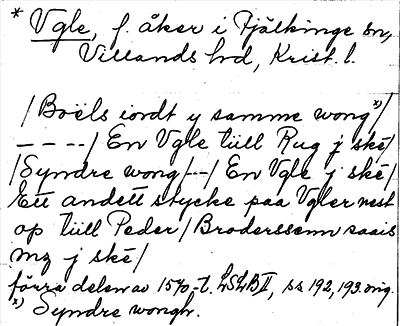 * Vgle, f. åker i Fjälkinge sn,
Villands hd, Krist. l.
/Boëls iordt y samme wong *)/
– – – –/ En Vgle tüll Rug j ské/
/Syndre wong/--/ En Vgle j ské/
Ett andett stycke paa Vgler nest
op tüll Peder/Broderssenn saais
mz j ské/
förra delen av 1570-t. LSLB II, ss 192, 193. orig.
*) Syndre wongh.